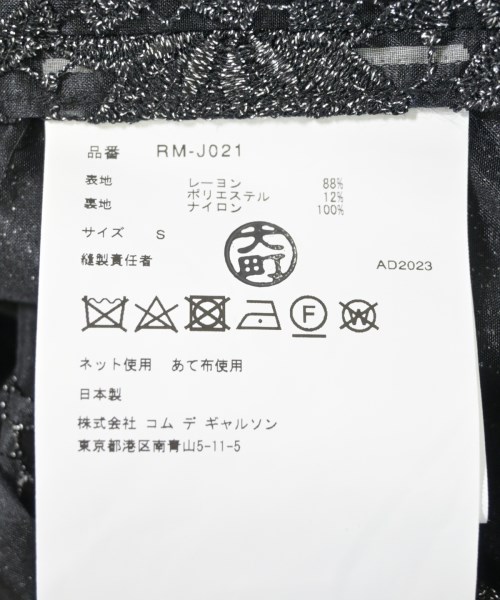 品番 RM-J021
表地 レーヨン 88%
ポリエステル 12%
裏地 ナイロン 100%
サイズ S
縫製責任者 大町 AD2023
F W
ネット使用 あて布使用
日本製
株式会社 コム デ ギャルソン
東京都港区南青山5-11-5